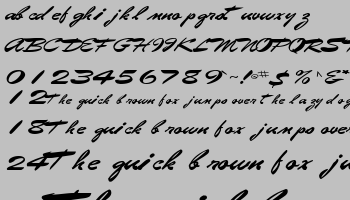 abcdefghijklmnopqrst uvwxyz
ABCDEFGHIJKLMNOPQRST
0123456789~!@#$%^&*
12 The quick brown fox jumps over the lazy dog
18 The quick brown fox jumps
24 The quick brown fox ju